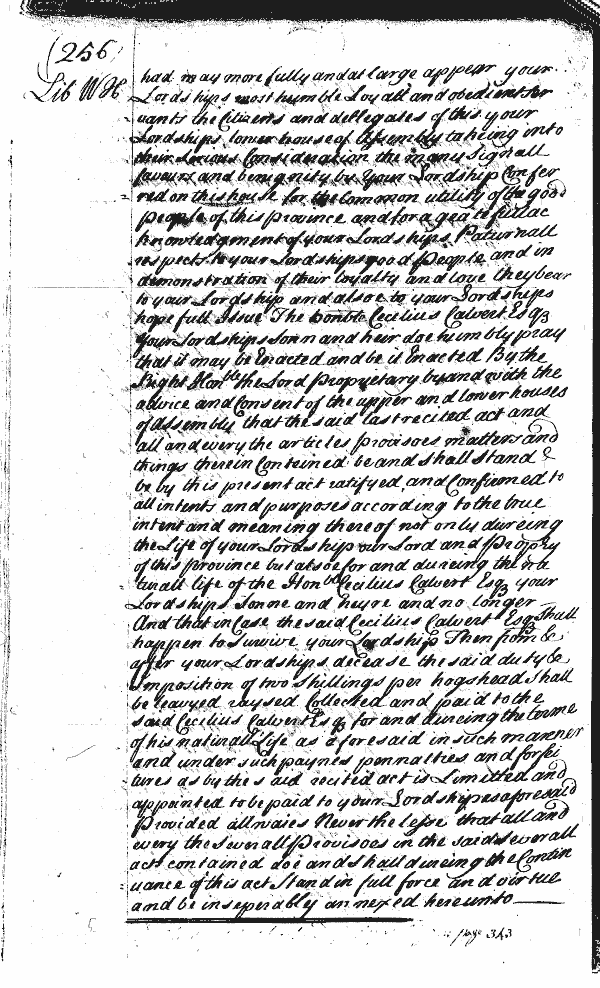 (256)
Lib WH
had may more fully and at large appear your
Lordships most humble Loyall and obedient Ser
vants the Citizens and dellegates of this your
Lordships lower house of Assembly takeing into
their Serious Consideration the many Signall
favours and benignity by your Lordship Confer
red on this house for the Common utility of the good
people of this province and for a gratefull ac
knowledgment of your Lordships Paturnall
respects to your Lordships good people and in
demonstration of their loyalty and love they bear
to your Lordship and alsoe to your Lordships
hopefull Issue The honble Cecilius Calvert Esqr
your Lordships Sonn and heir doe humbly pray
that it may be Enacted and be it Enacted By the
Right Honble the Lord Proprietary by and with the
advice and Consent of the upper and lower houses
of Assembly that the said last recited act and
all and every the articles provisoes matters and
things therein Conteined be and shall stand &
be by this present act ratifyed and Confirmed to
all intents and purposes according to the true
intent and meaning thereof not only dureing
the Life of your Lordship our Lord and Propry
of this province but alsoe for and dureing the na
turall life of the Honble Cecilius Calvert Esqr your
Lordships Sonne and heyre and no longer
And that in Case the said Cecilius Calvert Esqr Shall
happen to Survive your Lordship Then from &
after your Lordships decease the said duty &
Imposition of two shillings per hogshead shall
be leavyed raysed Collected and paid to the
said Cecilius Calvert Esqr for and dureing the terme
of his naturall Life as aforesaid in such manner
and under such paynes pennalties and forfei
tures as by the said recited act is Limitted and
appointed to be paid to your Lordship as aforesaid
Provided allwaies Neverthelesse that all and
every the Severall Provisoes in the said Severall
acts contained doe and shall dureing the Contin
uance of this act Stand in full force and virtue
and be inseperably annexed hereunto
page 343